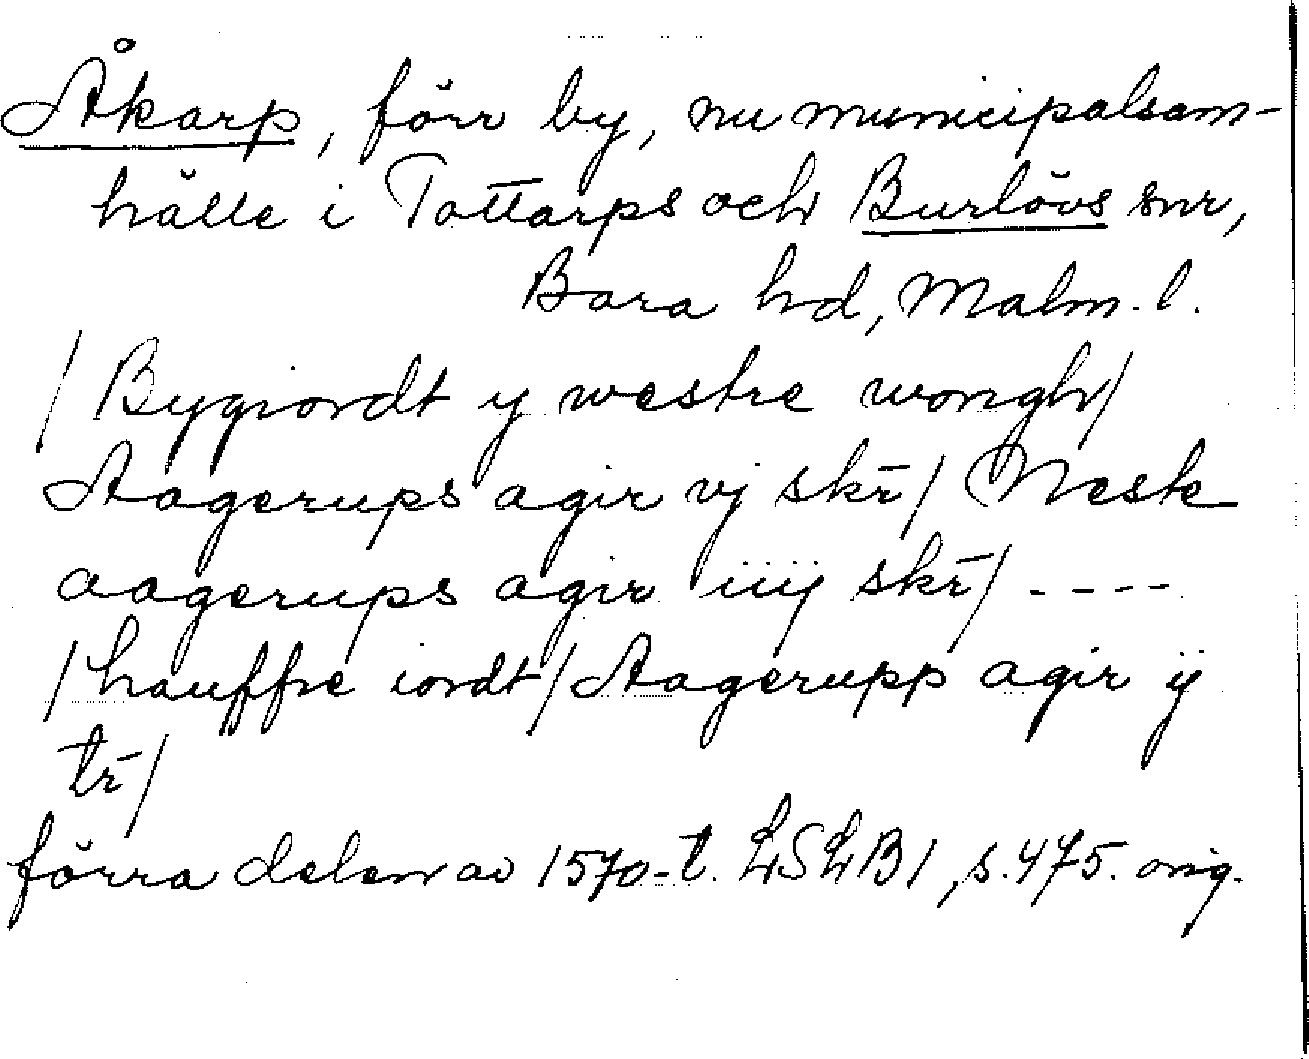 Åkarp, förr by, nu municipalsam-
hälle i Tottarps och Burlövs snr,
Bara hd, Malm. l.
/ Bygiordt y westre wongh /
Aagerups agir vj skr̄ / Nesk
aagerups agir iiij skr̄ / ----
/ hauffre iordt / Aagerupp agir ij
tr̄ /
förra delen av 1570-t. LSLB1, s. 475. orig.